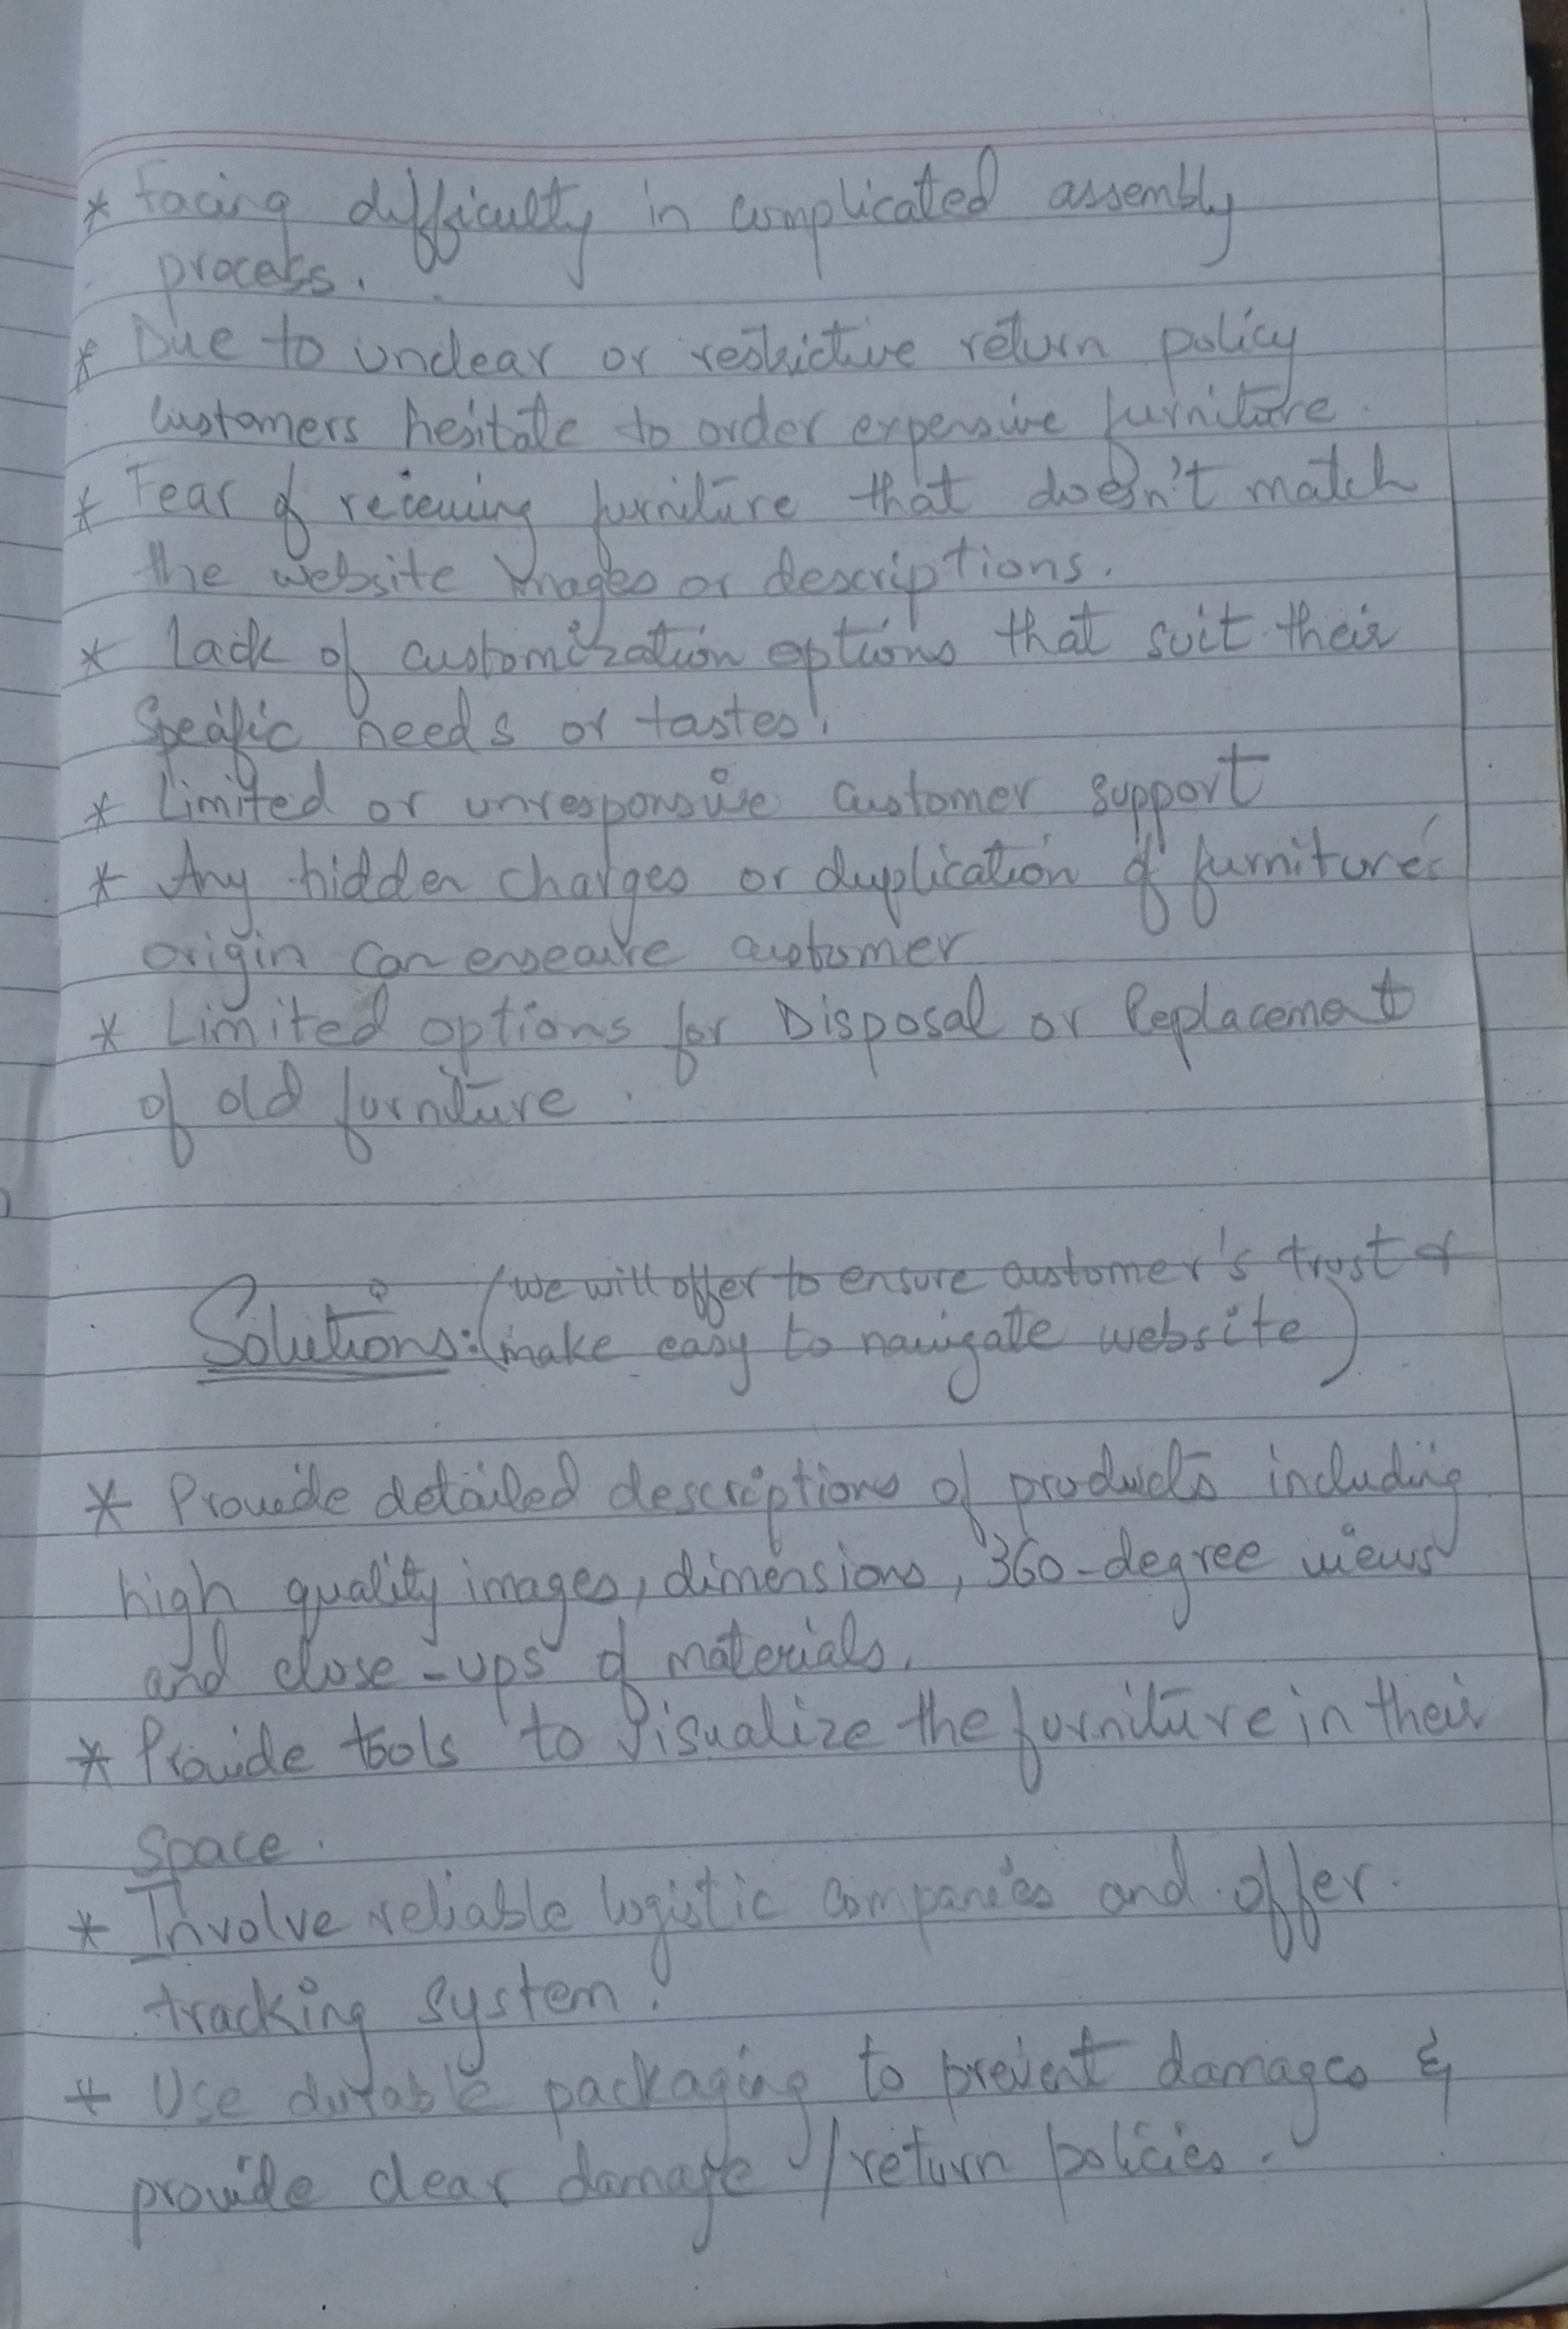 * Facing difficulty in complicated assembly
process.
* Due to unclear or restrictive return policy
customers hesitate to order expensive furniture.
* Fear of receiving furniture that doesn't match
the website images or descriptions.
* Lack of customization options that suit their
specific needs or tastes.
* Limited or unresponsive customer support
* Any hidden charges or duplication of furniture's
origin can customer
* Limited options for Disposal or Replacement
of old furniture.
(we will offer to ensure customer's trust &
Solutions: make easy to navigate website)
* Provide detailed descriptions of products including
high quality images, dimensions, 360-degree views
and close-ups of materials.
* Provide tools to visualize the furniture in their
space.
* Involve reliable logistic companies and offer
tracking system.
* Use durable packaging to prevent damages &
provide clear damage/return policies.